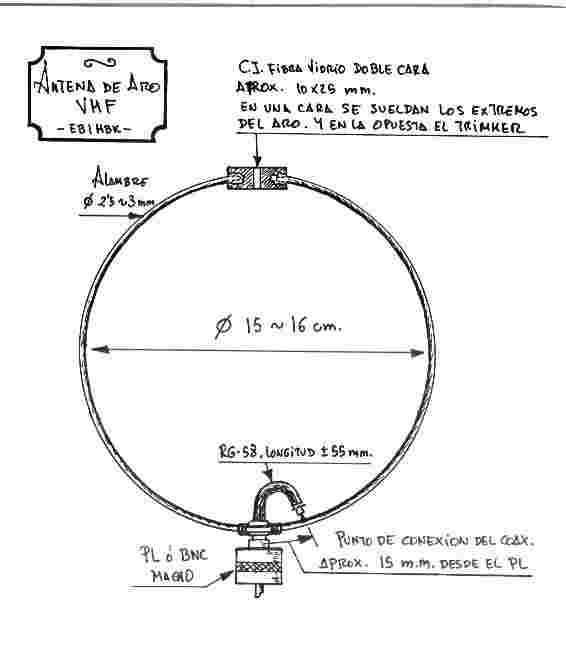 ANTENA DE ARO
VHF
- EB1HBK -
C.I. FIBRA VIDRIO DOBLE CARA
APROX. 10x25 mm.
EN UNA CARA SE SUELDAN LOS EXTREMOS
DEL ARO. Y EN LA OPUESTA EL TRIMKER
ALAMBRE
Ø 2'5 ~ 3 mm
Ø 15 ~ 16 cm.
RG-58, LONGITUD ± 55 mm.
PUNTO DE CONEXION DEL COAX.
APROX. 15 m.m. DESDE EL PL
PL ó BNC
MACHO